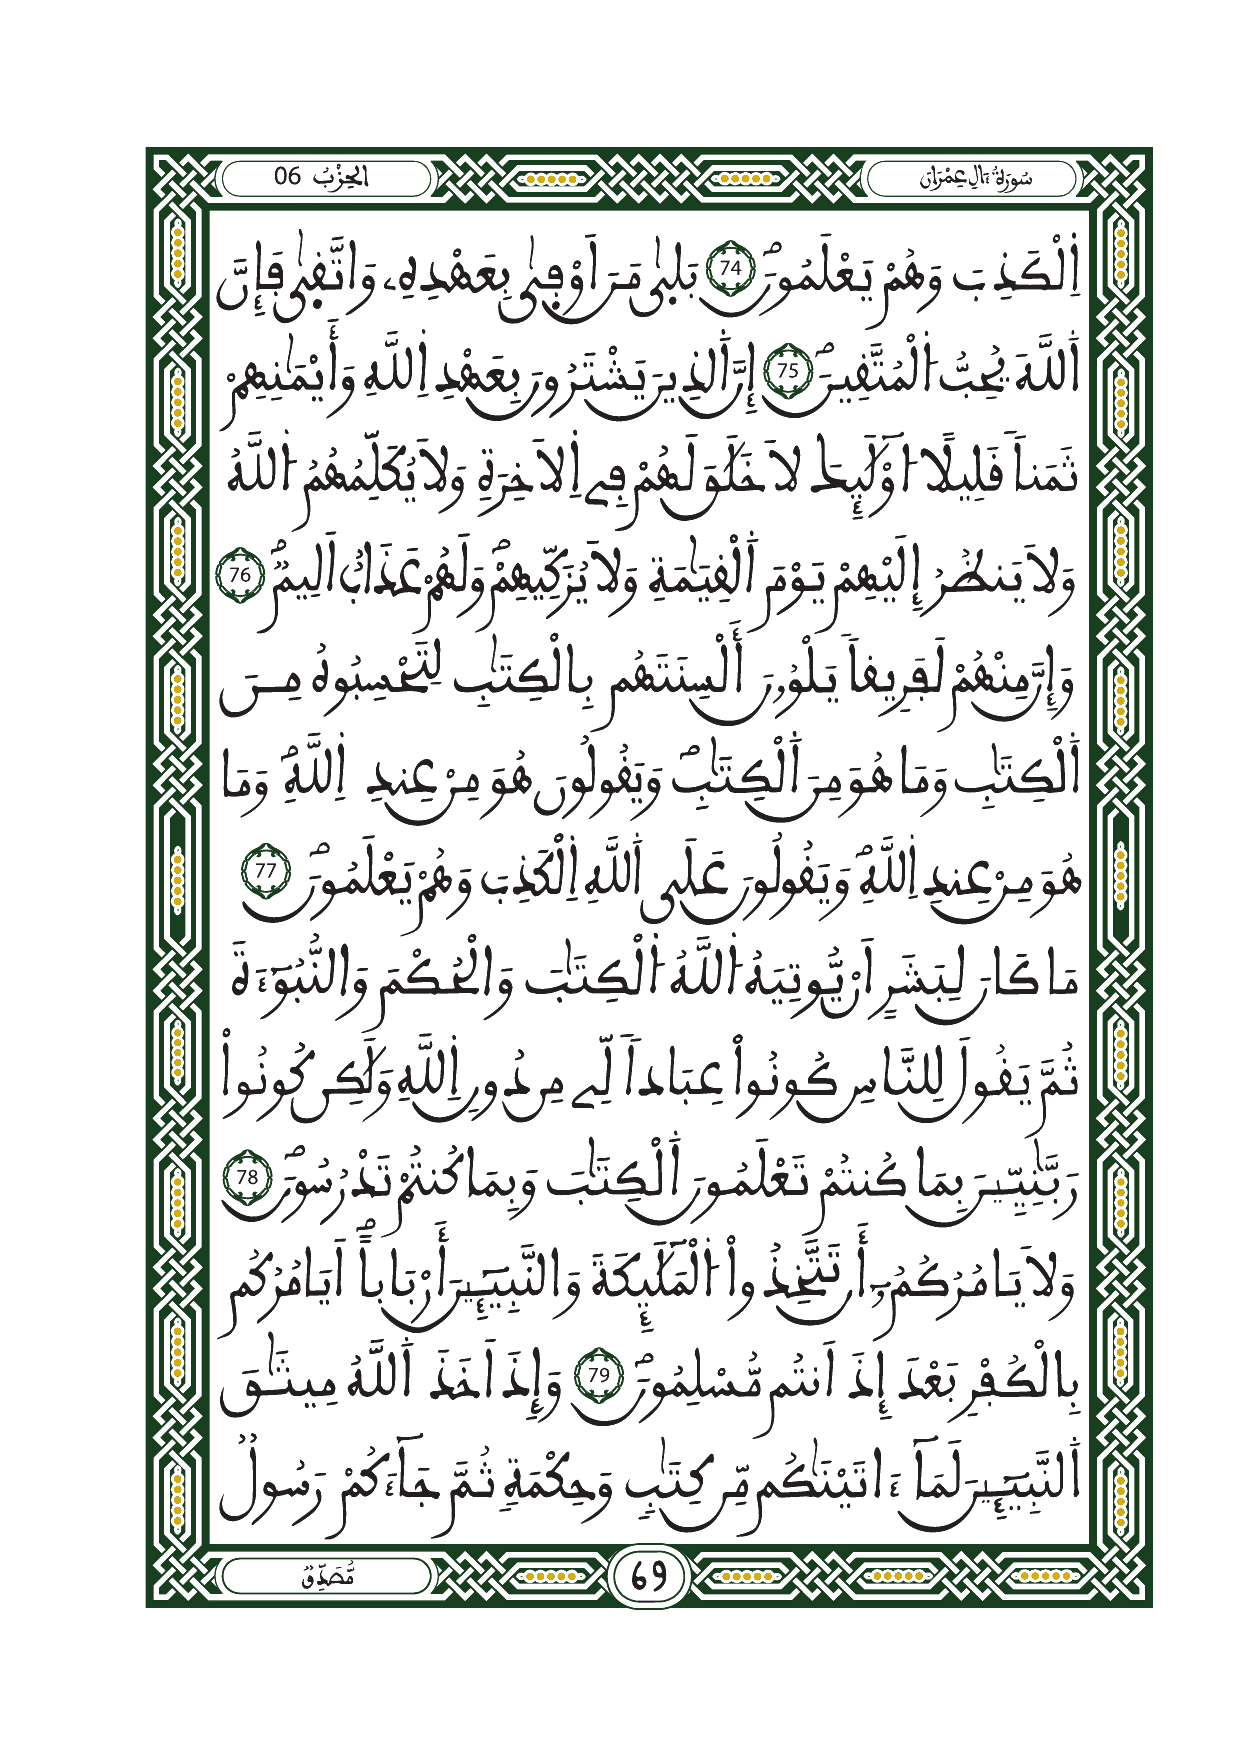 سُورَةُ ءَالِ عِمْرَان
الحِزْبُ 06
اِ۬لْكَذِبَ وَهُمْ يَعْلَمُونَۖ 74 بَلٜىٰ مَنَ اَوْفٜىٰ بِعَهْدِهِۦ وَاتَّقٜىٰ فَإِنَّ
اَ۬للَّهَ يُحِبُّ اُ۬لْمُتَّقِينَۖ 75 إِنَّ اَ۬لذِينَ يَشْتَرُونَ بِعَهْدِ اِ۬للَّهِ وَأَيْمَٰنِهِمْ
ثَمَناٗ قَلِيلاً ا۟وْلَٰٓئِكَ لَا خَلَٰقَ لَهُمْ فِے اِ۬لَاخِرَةِ وَلَا يُكَلِّمُهُمُ اُ۬للَّهُ
وَلَا يَنظُرُ إِلَيْهِمْ يَوْمَ اَ۬لْقِيَٰمَةِ وَلَا يُزَكِّيهِمْۖ وَلَهُمْ عَذَابٌ اَلِيمٞۖ 76
وَإِنَّ مِنْهُمْ لَفَرِيقاٗ يَلْوُۥنَ أَلْسِنَتَهُم بِالْكِتَٰبِ لِتَحْسِبُوهُ مِنَ
اَ۬لْكِتَٰبِ وَمَا هُوَ مِنَ اَ۬لْكِتَٰبِۖ وَيَقُولُونَ هُوَ مِنْ عِندِ اِ۬للَّهِۖ وَمَا
هُوَ مِنْ عِندِ اِ۬للَّهِۖ وَيَقُولُونَ عَلَى اَ۬للَّهِ اِ۬لْكَذِبَ وَهُمْ يَعْلَمُونَۖ 77
مَا كَانَ لِبَشَرٍ اَنْ يُّوتِيَهُ اُ۬للَّهُ اُ۬لْكِتَٰبَ وَالْحُكْمَ وَالنُّبُوٓءَةَ
ثُمَّ يَقُولَ لِلنَّاسِ كُونُواْ عِبَاداٗ لِّے مِن دُونِ اِ۬للَّهِ وَلَٰكِن كُونُواْ
رَبَّٰنِيِّينَ بِمَا كُنتُمْ تَعْلَمُونَ اَ۬لْكِتَٰبَ وَبِمَا كُنتُمْ تَدْرُسُونَۖ 78
وَلَا يَامُرُكُمُۥٓ أَن تَتَّخِذُواْ اُ۬لْمَلَٰٓئِكَةَ وَالنَّبِيٓـِٕينَ أَرْبَاباًۖ اَيَامُرُكُم
بِالْكُفْرِ بَعْدَ إِذَ اَنتُم مُّسْلِمُونَۖ 79 وَإِذَ اَخَذَ اَ۬للَّهُ مِيثَٰقَ
اَ۬لنَّبِيٓـِٕينَ لَمَآ ءَاتَيْنَٰكُم مِّن كِتَٰبٖ وَحِكْمَةٖ ثُمَّ جَآءَكُمْ رَسُولٞ
مُّصَدِّقٞ
69